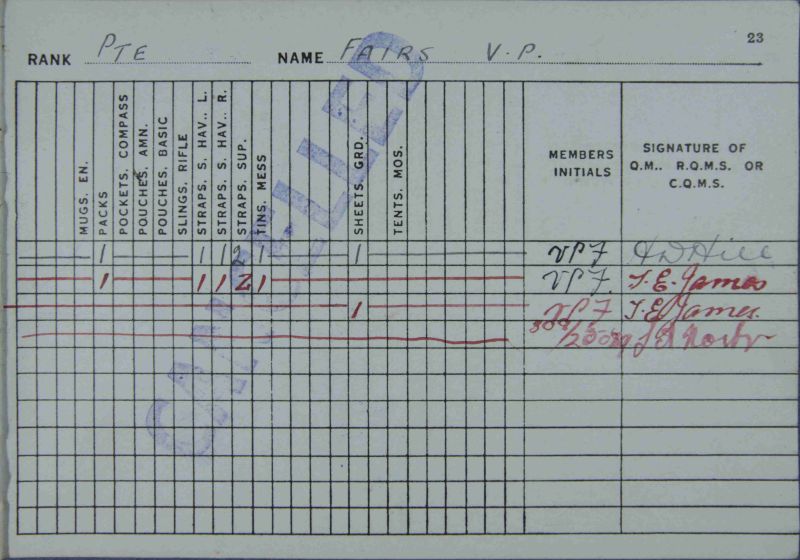 23
RANK PTE NAME FAIRS V.P.
MUGS. EN.
PACKS
POCKETS. COMPASS
POUCHES. AMN.
POUCHES. BASIC
SLINGS. RIFLE
STRAPS. S. HAV.. L.
STRAPS. S. HAV.. R.
STRAPS. SUP.
TINS. MESS
SHEETS. GRD.
TENTS. MOS.
MEMBERS INITIALS
SIGNATURE OF Q.M.. R.Q.M.S. OR C.Q.M.S.
CANCELLED
1 1 1 2 1 1 VPF H D Hill
1 1 1 2 1 VPF. T.E. James
1 VPF T.E. James.